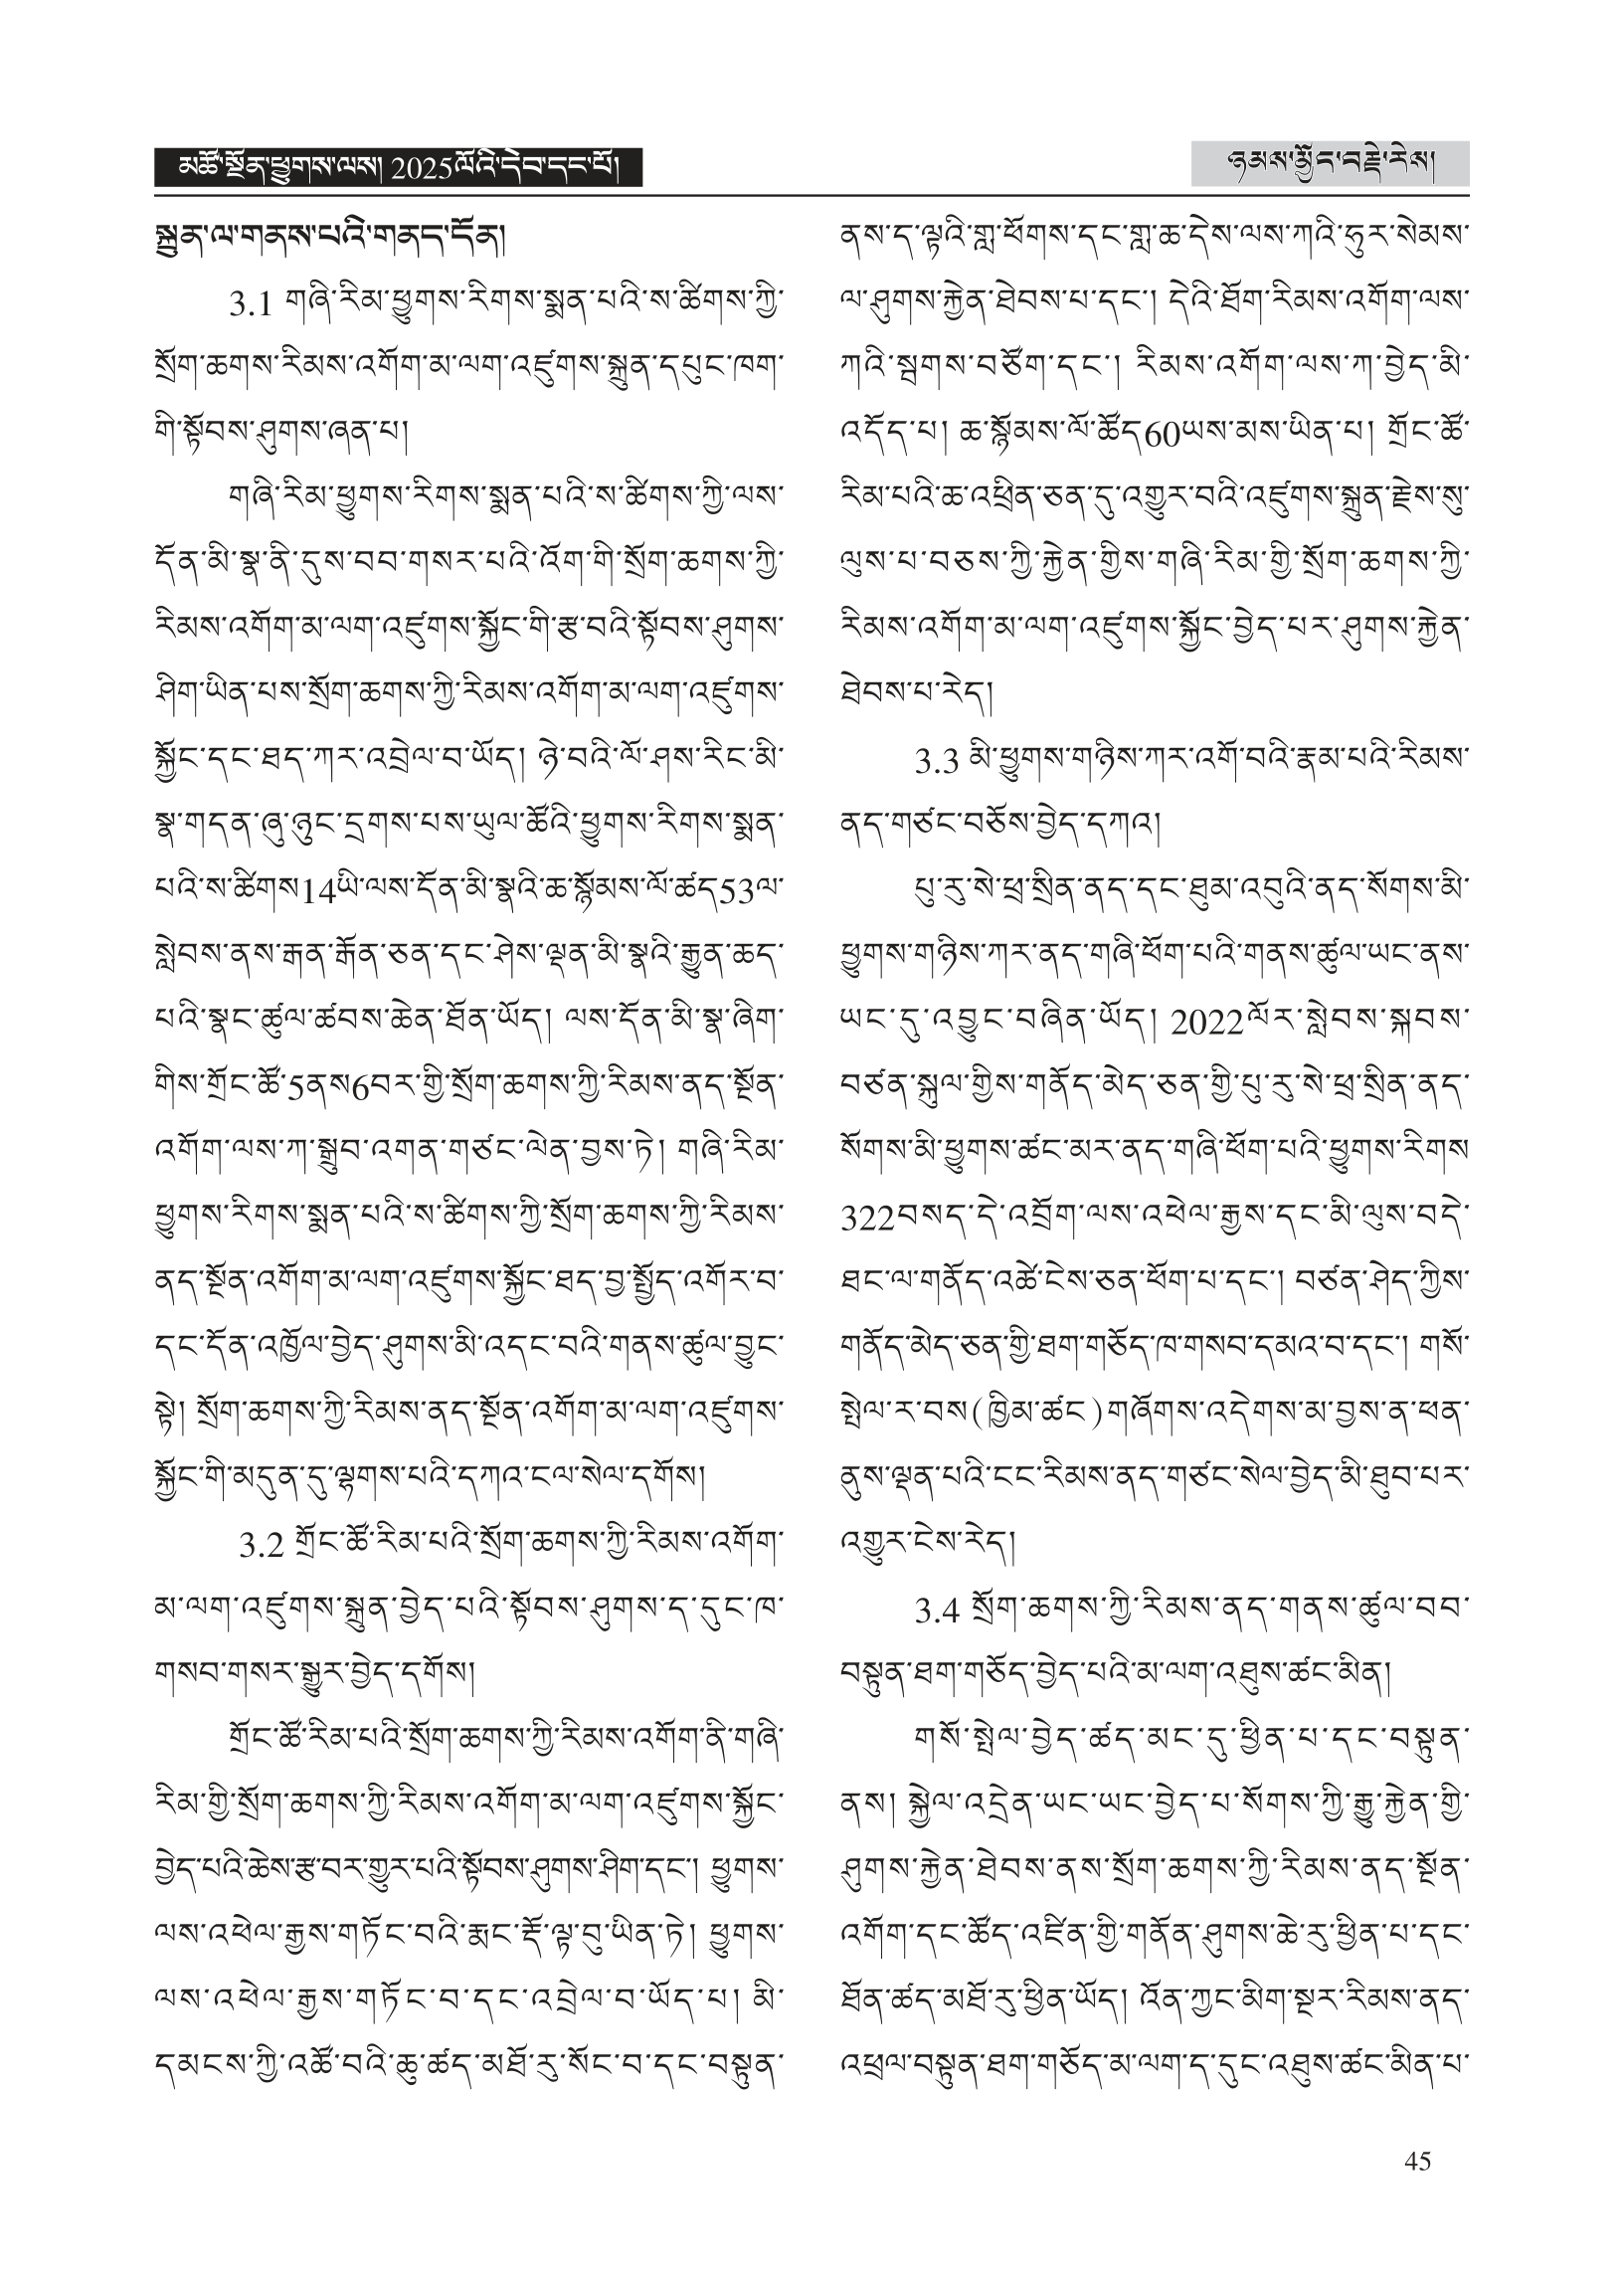 མཚོ་སྔོན་ཕྱུགས་ལས། 2025ལོའི་དེབ་དང་པོ།
ཉམས་མྱོང་བརྗེ་རེས།
སྐྲུན་ལ་གནས་པའི་གནད་དོན།
3.1 གཞི་རིམ་ཕྱུགས་རིགས་སྨན་པའི་ས་ཚིགས་ཀྱི་
སྲོག་ཆགས་རིམས་འགོག་མ་ལག་འཛུགས་སྐྲུན་དཔུང་ཁག་
གི་སྟོབས་ཤུགས་ཞན་པ།
གཞི་རིམ་ཕྱུགས་རིགས་སྨན་པའི་ས་ཚིགས་ཀྱི་ལས་
དོན་མི་སྣ་ནི་དུས་བབ་གསར་པའི་འོག་གི་སྲོག་ཆགས་ཀྱི་
རིམས་འགོག་མ་ལག་འཛུགས་སྐྱོང་གི་རྩ་བའི་སྟོབས་ཤུགས་
ཤིག་ཡིན་པས་སྲོག་ཆགས་ཀྱི་རིམས་འགོག་མ་ལག་འཛུགས་
སྐྱོང་དང་ཐད་ཀར་འབྲེལ་བ་ཡོད། ཉེ་བའི་ལོ་ཤས་རིང་མི་
སྣ་གདན་ཞུ་ཉུང་དྲགས་པས་ཡུལ་ཚོའི་ཕྱུགས་རིགས་སྨན་
པའི་ས་ཚིགས14ཡི་ལས་དོན་མི་སྣའི་ཆ་སྙོམས་ལོ་ཚད53ལ་
སླེབས་ནས་རྒན་རྒོན་ཅན་དང་ཤེས་ལྡན་མི་སྣའི་རྒྱུན་ཆད་
པའི་སྣང་ཚུལ་ཚབས་ཆེན་ཐོན་ཡོད། ལས་དོན་མི་སྣ་ཞིག་
གིས་གྲོང་ཚོ་5ནས6བར་གྱི་སྲོག་ཆགས་ཀྱི་རིམས་ནད་སྔོན་
འགོག་ལས་ཀ་སྒྲུབ་འགན་གཙང་ལེན་བྱས་ཏེ། གཞི་རིམ་
ཕྱུགས་རིགས་སྨན་པའི་ས་ཚིགས་ཀྱི་སྲོག་ཆགས་ཀྱི་རིམས་
ནད་སྔོན་འགོག་མ་ལག་འཛུགས་སྐྱོང་ཐད་བྱ་སྤྱོད་འགོར་བ་
དང་དོན་འཁྱོལ་བྱེད་ཤུགས་མི་འདང་བའི་གནས་ཚུལ་བྱུང་
སྟེ། སྲོག་ཆགས་ཀྱི་རིམས་ནད་སྔོན་འགོག་མ་ལག་འཛུགས་
སྐྱོང་གི་མདུན་དུ་ལྷགས་པའི་དཀའ་ངལ་སེལ་དགོས།
3.2 གྲོང་ཚོ་རིམ་པའི་སྲོག་ཆགས་ཀྱི་རིམས་འགོག་
མ་ལག་འཛུགས་སྐྲུན་བྱེད་པའི་སྟོབས་ཤུགས་ད་དུང་ཁ་
གསབ་གསར་སྒྱུར་བྱེད་དགོས།
གྲོང་ཚོ་རིམ་པའི་སྲོག་ཆགས་ཀྱི་རིམས་འགོག་ནི་གཞི་
རིམ་གྱི་སྲོག་ཆགས་ཀྱི་རིམས་འགོག་མ་ལག་འཛུགས་སྐྱོང་
བྱེད་པའི་ཆེས་རྩ་བར་གྱུར་པའི་སྟོབས་ཤུགས་ཤིག་དང་། ཕྱུགས་
ལས་འཕེལ་རྒྱས་གཏོང་བའི་རྨང་རྡོ་ལྟ་བུ་ཡིན་ཏེ། ཕྱུགས་
ལས་འཕེལ་རྒྱས་གཏོང་བ་དང་འབྲེལ་བ་ཡོད་པ། མི་
དམངས་ཀྱི་འཚོ་བའི་ཆུ་ཚད་མཐོ་རུ་སོང་བ་དང་བསྟུན་
ནས་ད་ལྟའི་གླ་ཕོགས་དང་གླ་ཆ་དེས་ལས་ཀའི་ཧུར་སེམས་
ལ་ཤུགས་རྐྱེན་ཐེབས་པ་དང་། དེའི་ཐོག་རིམས་འགོག་ལས་
ཀའི་སྦགས་བཙོག་དང་། རིམས་འགོག་ལས་ཀ་བྱེད་མི་
འདོད་པ། ཆ་སྙོམས་ལོ་ཚོད60ཡས་མས་ཡིན་པ། གྲོང་ཚོ་
རིམ་པའི་ཆ་འཕྲིན་ཅན་དུ་འགྱུར་བའི་འཛུགས་སྐྲུན་རྗེས་སུ་
ལུས་པ་བཅས་ཀྱི་རྐྱེན་གྱིས་གཞི་རིམ་གྱི་སྲོག་ཆགས་ཀྱི་
རིམས་འགོག་མ་ལག་འཛུགས་སྐྱོང་བྱེད་པར་ཤུགས་རྐྱེན་
ཐེབས་པ་རེད།
3.3 མི་ཕྱུགས་གཉིས་ཀར་འགོ་བའི་རྣམ་པའི་རིམས་
ནད་གཙང་བཅོས་བྱེད་དཀའ།
པུ་རུ་སེ་ཕྲ་སྲིན་ནད་དང་ཐུམ་འབུའི་ནད་སོགས་མི་
ཕྱུགས་གཉིས་ཀར་ནད་གཞི་ཕོག་པའི་གནས་ཚུལ་ཡང་ནས་
ཡང་དུ་འབྱུང་བཞིན་ཡོད། 2022ལོར་སླེབས་སྐབས་
བཙན་སྐུལ་གྱིས་གནོད་མེད་ཅན་གྱི་པུ་རུ་སེ་ཕྲ་སྲིན་ནད་
སོགས་མི་ཕྱུགས་ཚང་མར་ནད་གཞི་ཕོག་པའི་ཕྱུགས་རིགས
322བསད་དེ་འབྲོག་ལས་འཕེལ་རྒྱས་དང་མི་ལུས་བདེ་
ཐང་ལ་གནོད་འཚེ་ངེས་ཅན་ཕོག་པ་དང་། བཙན་ཤེད་ཀྱིས་
གནོད་མེད་ཅན་གྱི་ཐག་གཅོད་ཁ་གསབ་དམའ་བ་དང་། གསོ་
སྤེལ་ར་བས(ཁྱིམ་ཚང)གཞོགས་འདེགས་མ་བྱས་ན་ཕན་
ནུས་ལྡན་པའི་ངང་རིམས་ནད་གཙང་སེལ་བྱེད་མི་ཐུབ་པར་
འགྱུར་ངེས་རེད།
3.4 སྲོག་ཆགས་ཀྱི་རིམས་ནད་གནས་ཚུལ་བབ་
བསྟུན་ཐག་གཅོད་བྱེད་པའི་མ་ལག་འཐུས་ཚང་མིན།
གསོ་སྤེལ་བྱེད་ཚད་མང་དུ་ཕྱིན་པ་དང་བསྟུན་
ནས། སྐྱེལ་འདྲེན་ཡང་ཡང་བྱེད་པ་སོགས་ཀྱི་རྒྱུ་རྐྱེན་གྱི་
ཤུགས་རྐྱེན་ཐེབས་ནས་སྲོག་ཆགས་ཀྱི་རིམས་ནད་སྔོན་
འགོག་དང་ཚོད་འཛིན་གྱི་གནོན་ཤུགས་ཆེ་རུ་ཕྱིན་པ་དང་
ཐོན་ཚད་མཐོ་རུ་ཕྱིན་ཡོད། འོན་ཀྱང་མིག་སྔར་རིམས་ནད་
འཕྲལ་བསྟུན་ཐག་གཅོད་མ་ལག་ད་དུང་འཐུས་ཚང་མིན་པ་
45